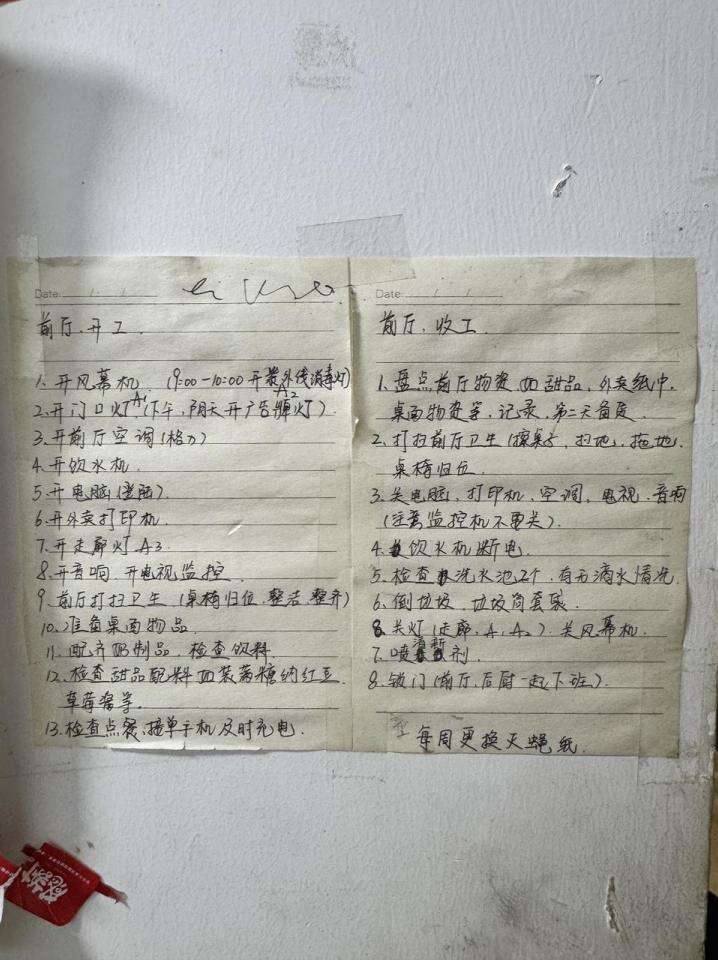 Date
前厅、开工.
1、开风幕机. (9:00-10:00开紫外线消毒灯)
2、开门口灯A1(下午,阴天开广告牌灯A2).
3、开前厅空调(格力)
4、开饮水机.
5、开电脑(登陆).
6、开外卖打印机.
7、开走廊灯A3
8、开音响、开电视监控.
9、前厅打扫卫生(桌椅归位、整洁、整齐)
10、准备桌面物品.
11、配齐奶制品,检查饮料.
12、检查甜品配料如蔗糖纳红豆.
草莓酱等.
13、检查点餐、接单手机及时充电.
Date
前厅、收工.
1、盘点前厅物资如甜品,外卖纸巾,
桌面物资等、记录、第二天备货.
2、打扫前厅卫生(擦桌子,扫地,拖地.
桌椅归位.
3、关电脑、打印机、空调、电视、音响
(注意监控机不要关).
4、饮水机断电.
5、检查洗水池2个,有无滴水情况.
6、倒垃圾、垃圾筒套袋.
8、关灯(走廊、A1、A2)、关风幕机.
7、喷清新剂.
8、锁门(前厅,后厨一起下班).
每周更换灭蝇纸.